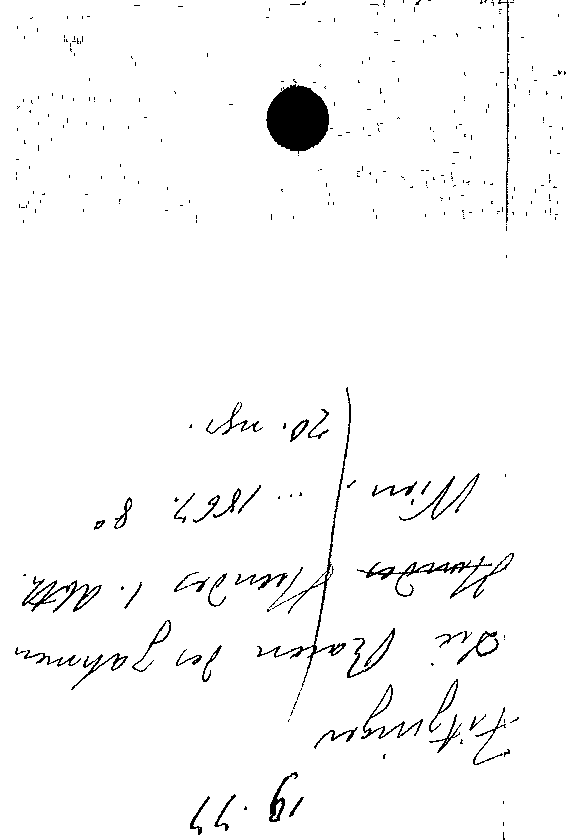 Fitzinger
Die Racen des zahmen
Hundes Hundes 1. Abth.
Wien, ... 1867. 8°
20. ngr.